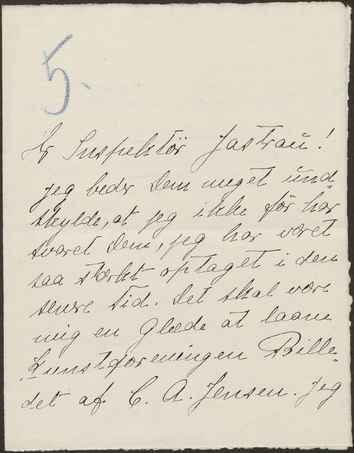 5.
Hr Inspektør Jastrau!
jeg beder Dem meget und
skylde, at jeg ikke før har
svaret Dem, jeg har været
saa stærkt optaget i den
senere Tid. Det skal være
mig en Glæde at laane
Kunstforeningen Bille-
det af C. A. Jensen. Jeg